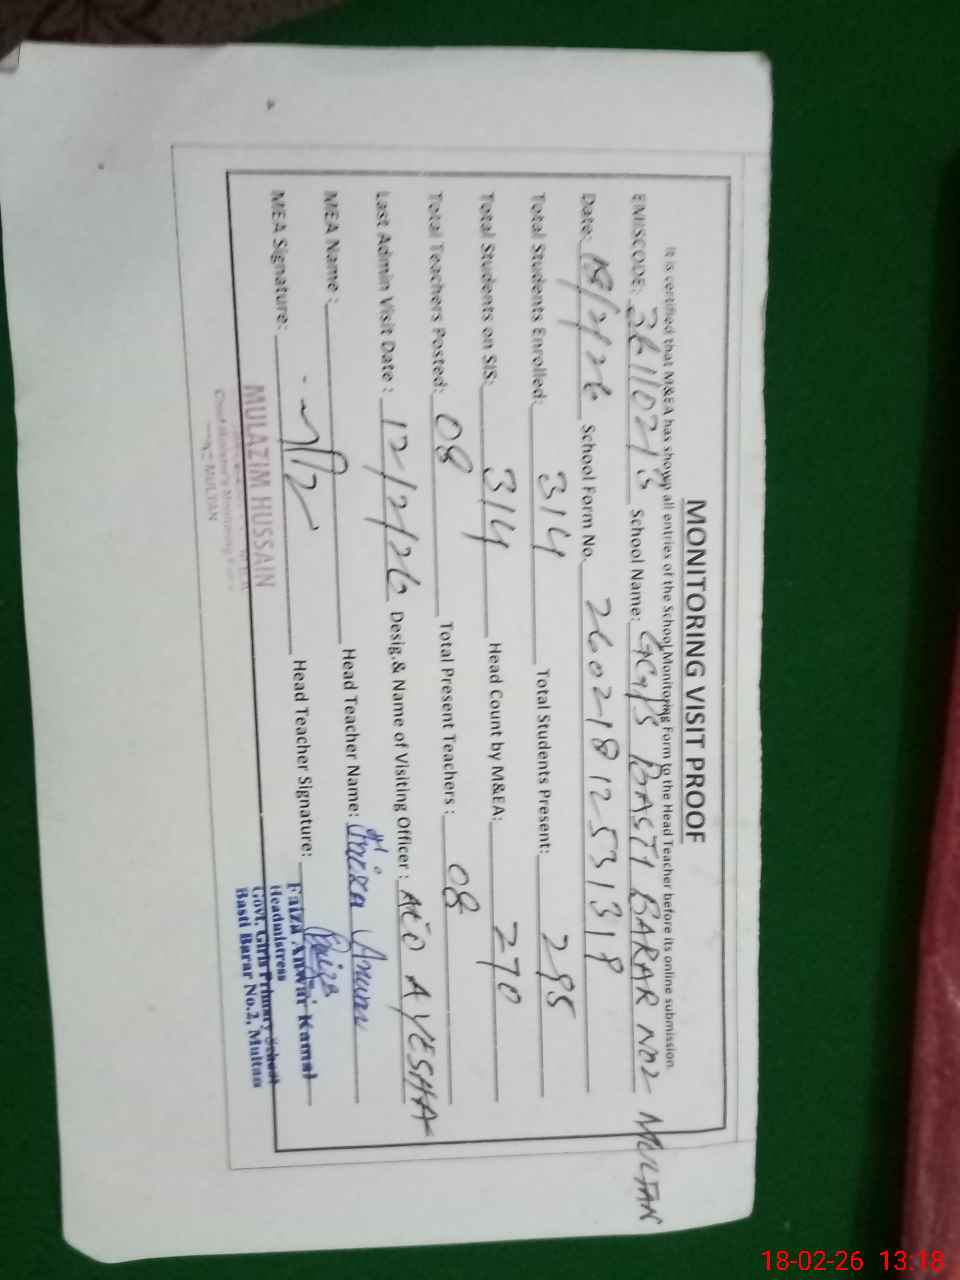 MONITORING VISIT PROOF
It is certified that M&EA has shown all entries of the School Monitoring Form to the Head Teacher before its online submission.
EMISCODE: 36110213 School Name: GGPS BASTI BARAR NO2 MULTAN
Date: 18/2/26 School Form No. 260218125313 18
Total Students Enrolled: 314 Total Students Present: 295
Total Students on SIS: 314 Head Count by M&EA: 270
Total Teachers Posted: 08 Total Present Teachers : 08
Last Admin Visit Date : 12/2/26 Desig.& Name of Visiting Officer : AEO AYESHA
MEA Name : Head Teacher Name: Faiza Anwar
MEA Signature: Head Teacher Signature: Faiza
MULAZIM HUSSAIN
MULTAN
Faiza Anwar Kamal
Headmistress
Govt. Girls Primary School
Basti Barar No.2, Multan
18-02-26 13:18